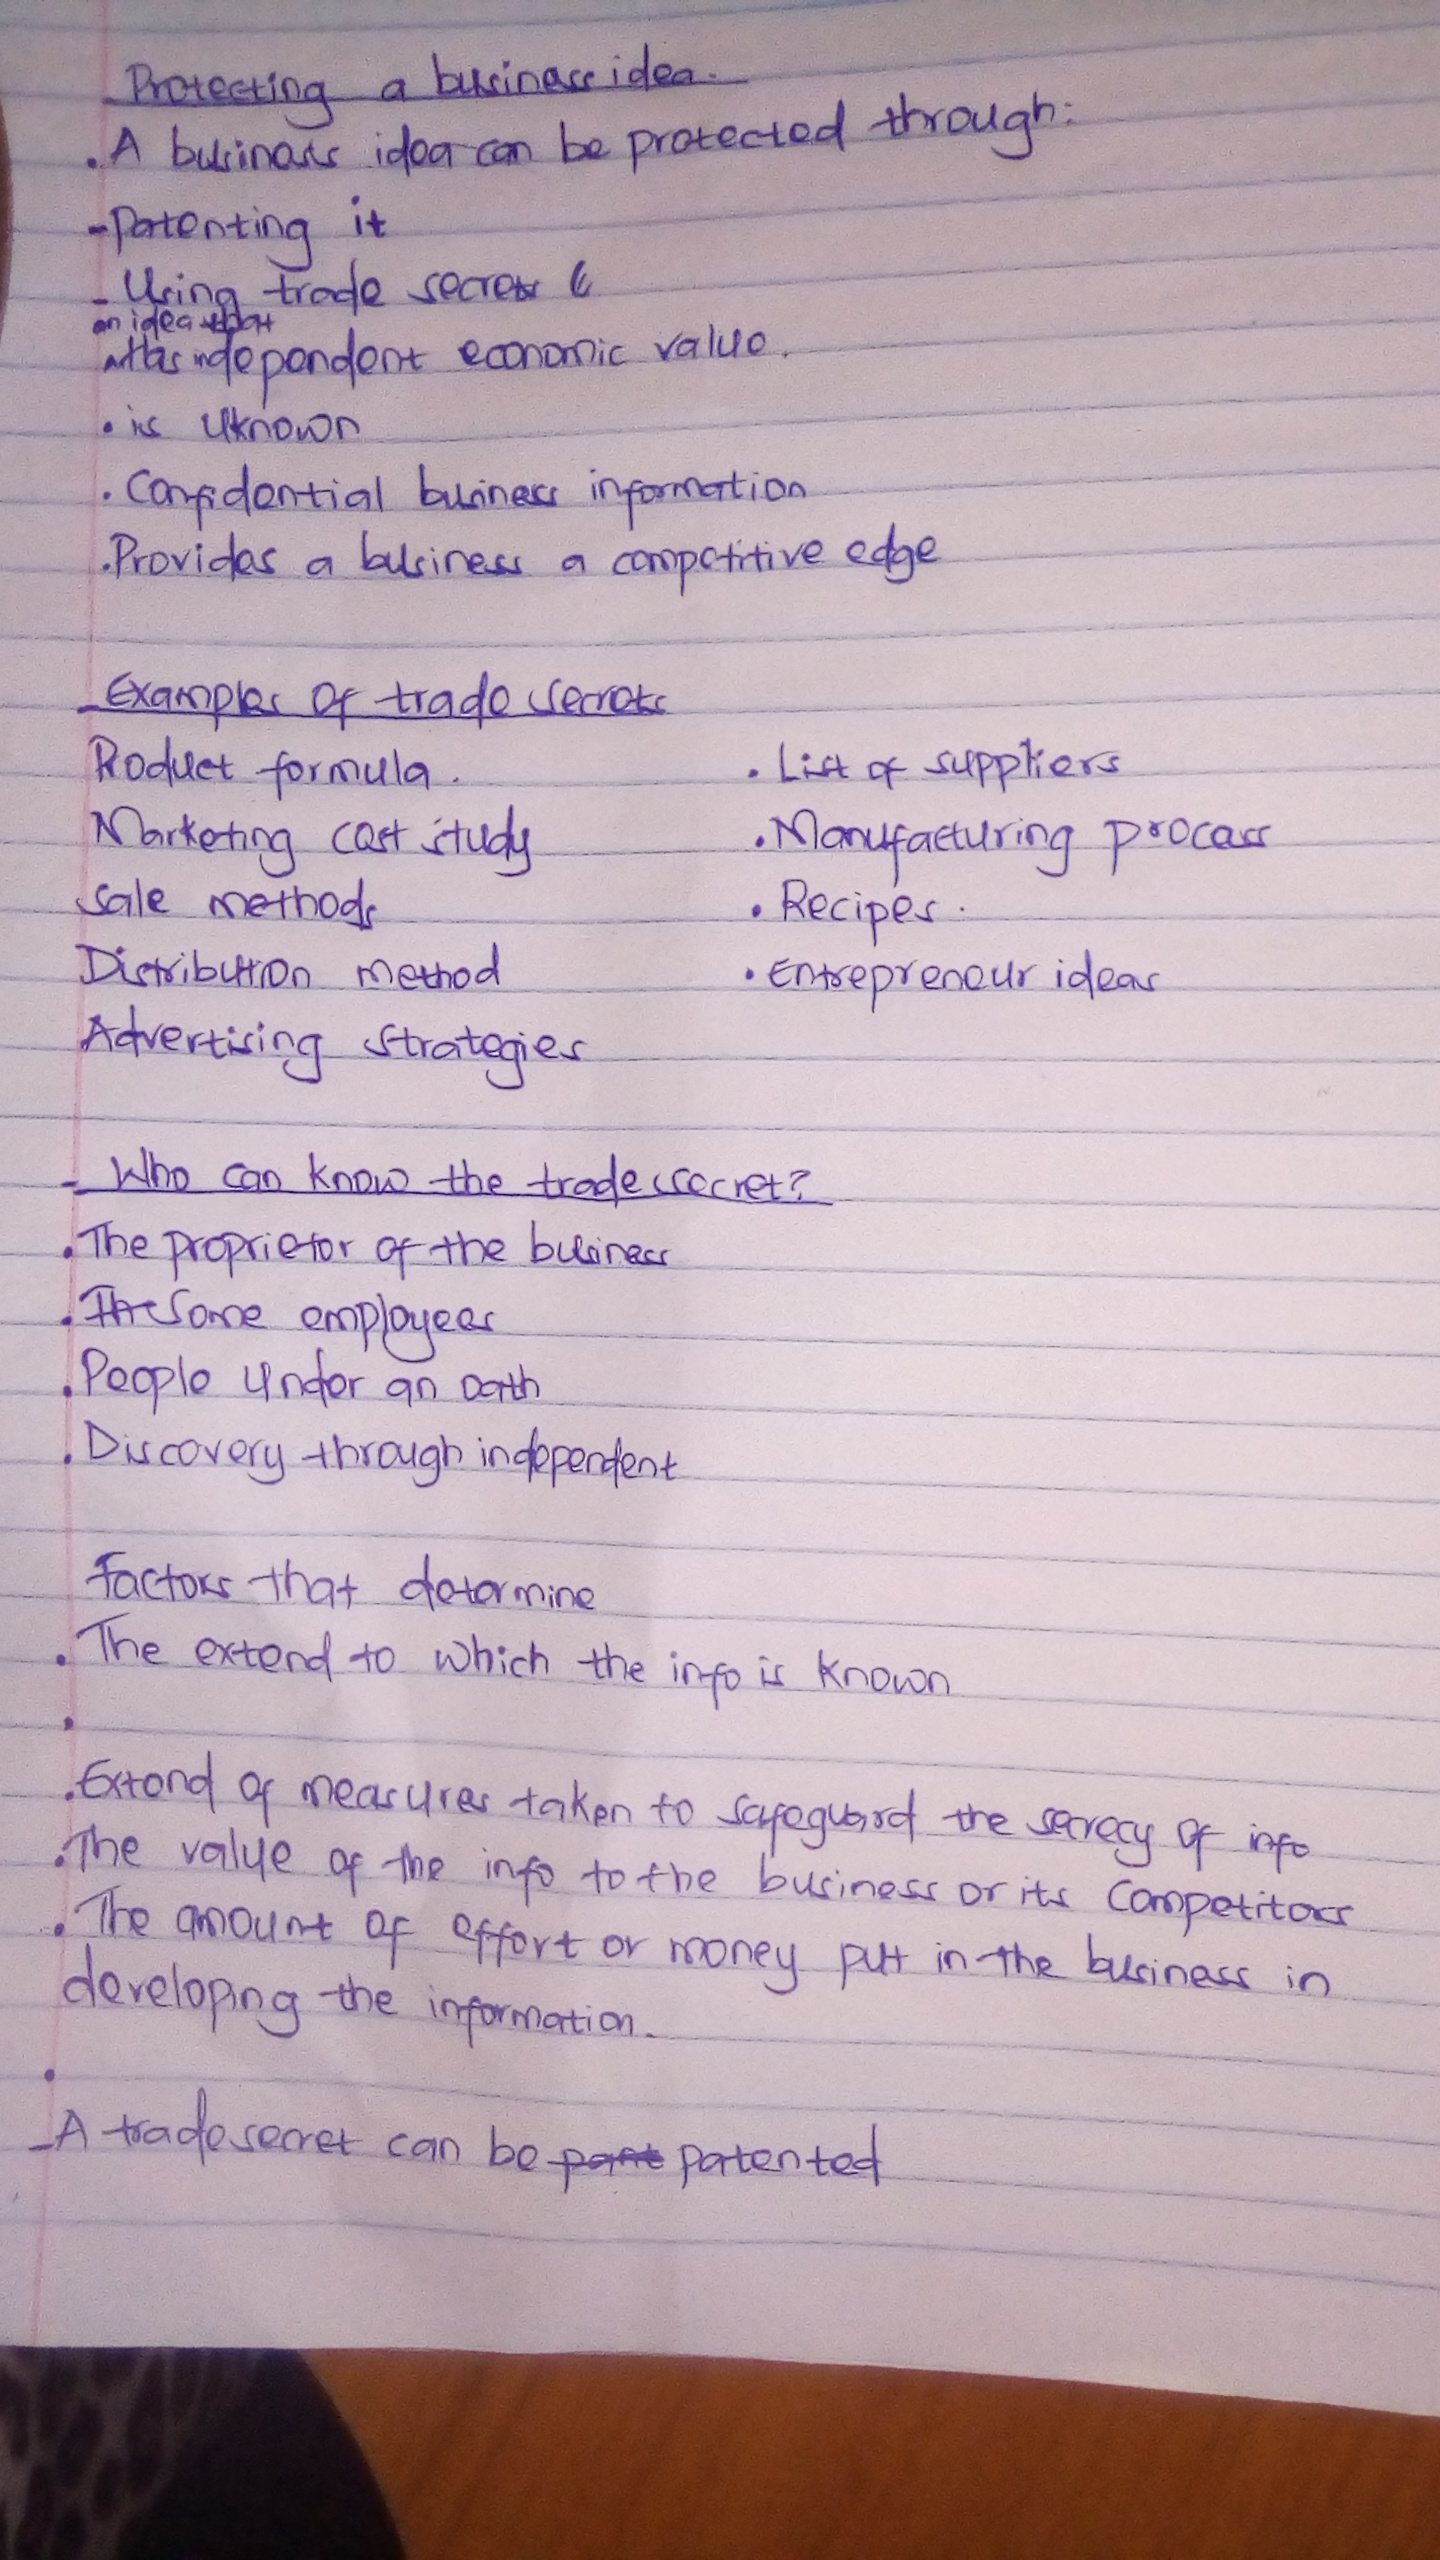 Protecting a business idea.
. A business idea can be protected through:
- Patenting it
- Using trade secrets (
an idea that
Has independent economic value.
. is uknown
. Confidential business information
. Provides a business a competitive edge
- Examples of trade secrets
Product formula.
Marketing cost study
Sale methods
Distribution method
Advertising strategies
. List of suppliers
. Manufacturing process
. Recipes.
. Entrepreneur ideas
- Who can know the trade secret?
. The proprietor of the business
. The Some employees
. People under an oath
. Discovery through independent
Factors that determine
. The extend to which the info is known
.
. Extend of measures taken to safeguard the secrecy of info
. The value of the info to the business or its competitors
. The amount of effort or money put in the business in
developing the information.
.
- A trade secret can be pant patented